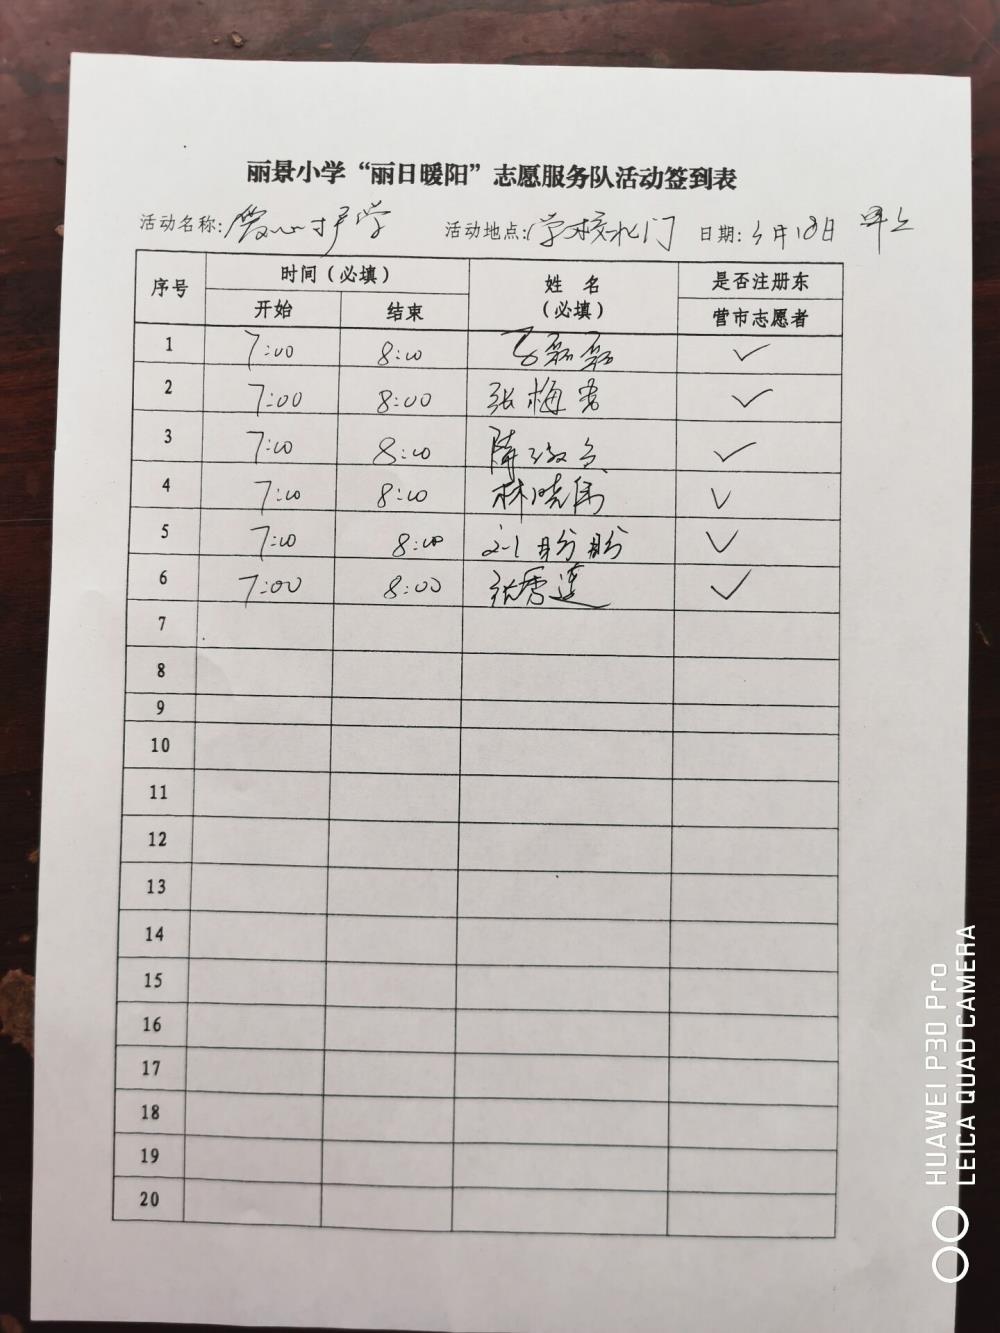 丽景小学“丽日暖阳”志愿服务队活动签到表
活动名称: 爱心护学 活动地点: 学校北门 日期: 5月18日 早上
序号 时间(必填) 姓 名 (必填) 是否注册东营市志愿者
开始 结束
1 7:00 8:00 磊磊 ✓
2 7:00 8:00 张梅 ✓
3 7:00 8:00 陈 ✓
4 7:00 8:00 林晓伟 ✓
5 7:00 8:00 盼盼 ✓
6 7:00 8:00 张秀莲 ✓
7
8
9
10
11
12
13
14
15
16
17
18
19
20
HUAWEI P30 Pro
LEICA QUAD CAMERA